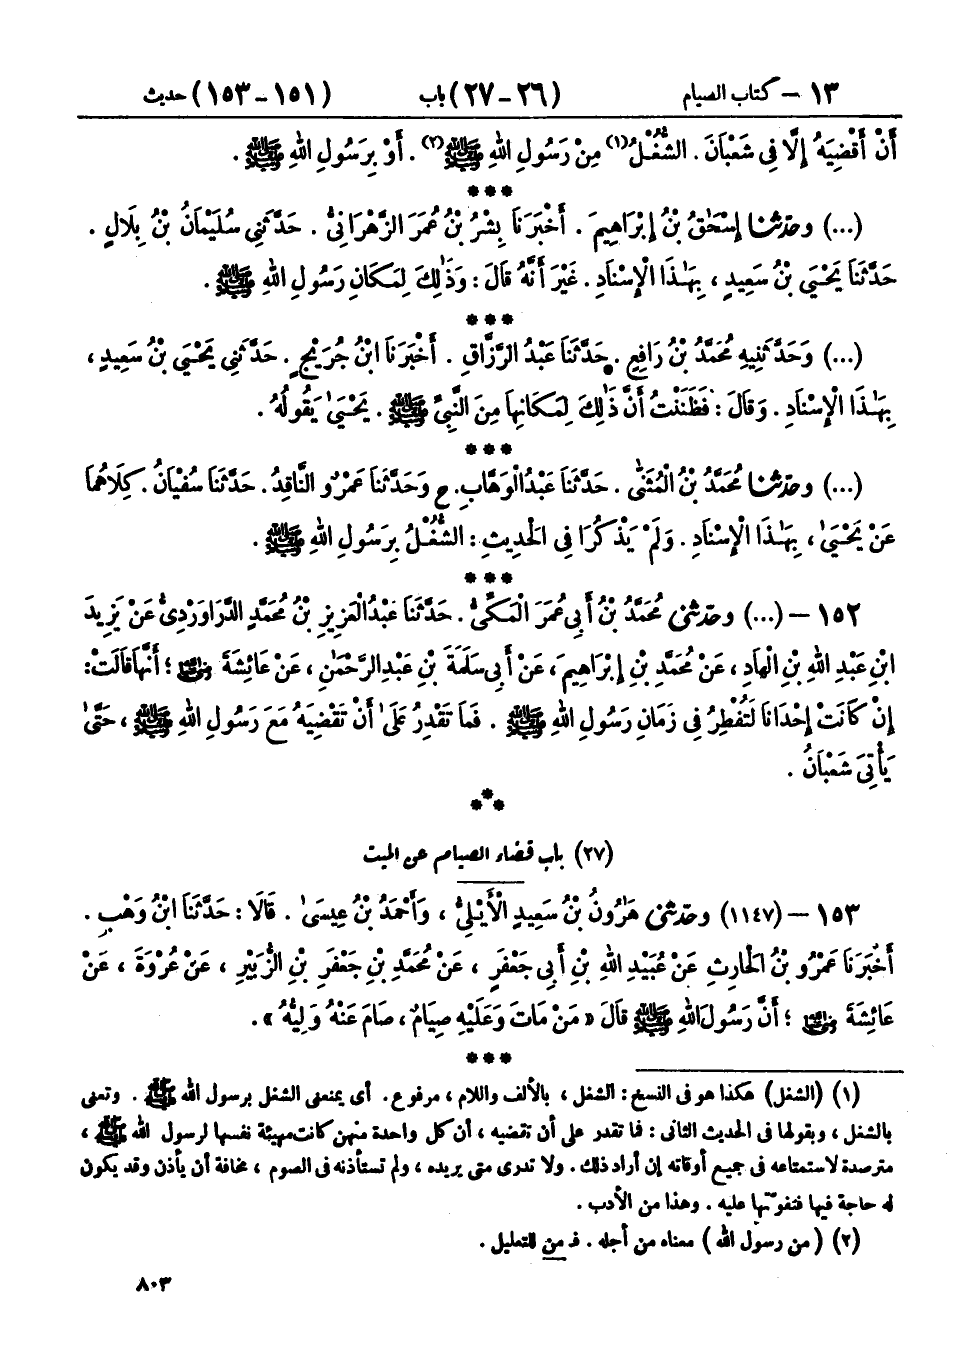 ١٣ – كتاب الصيام (٢٦ – ٢٧) باب (١٥١ – ١٥٣) حديث
أَنْ أَقْضِيَهُ إِلَّا فِي شَعْبَانَ . الشُّغْلُ(١) مِنْ رَسُولِ اللهِ ﷺ(٢) . أَوْ بِرَسُولِ اللهِ ﷺ .
***
(...) وحدثنا إِسْحَٰقُ بْنُ إِبْرَاهِيمَ . أَخْبَرَنَا بِشْرُ بْنُ عُمَرَ الزَّهْرَانِيُّ . حَدَّثَنِي سُلَيْمَانُ بْنُ بِلَالٍ .
حَدَّثَنَا يَحْيَى بْنُ سَعِيدٍ ، بِهَٰذَا الْإِسْنَادِ . غَيْرَ أَنَّهُ قَالَ : وَذَٰلِكَ لِمَكَانِ رَسُولِ اللهِ ﷺ .
***
(...) وَحَدَّثَنِيهِ مُحَمَّدُ بْنُ رَافِعٍ . حَدَّثَنَا عَبْدُ الرَّزَّاقِ . أَخْبَرَنَا ابْنُ جُرَيْجٍ . حَدَّثَنِي يَحْيَى بْنُ سَعِيدٍ ،
بِهَٰذَا الْإِسْنَادِ . وَقَالَ : فَظَنَنْتُ أَنَّ ذَٰلِكَ لِمَكَانِهَا مِنَ النَّبِيِّ ﷺ . يَحْيَىٰ يَقُولُهُ .
***
(...) وحدثنا مُحَمَّدُ بْنُ الْمُثَنَّىٰ . حَدَّثَنَا عَبْدُ الْوَهَّابِ . ح وَحَدَّثَنَا عَمْرٌو النَّاقِدُ . حَدَّثَنَا سُفْيَانُ . كِلَاهُمَا
عَنْ يَحْيَىٰ ، بِهَٰذَا الْإِسْنَادِ . وَلَمْ يَذْكُرَا فِي الْحَدِيثِ : الشُّغْلُ بِرَسُولِ اللهِ ﷺ .
***
١٥٢ – (...) وحدثني مُحَمَّدُ بْنُ أَبِي عُمَرَ الْمَكِّيُّ . حَدَّثَنَا عَبْدُ الْعَزِيزِ بْنُ مُحَمَّدٍ الدَّرَاوَرْدِيُّ عَنْ يَزِيدَ
ابْنِ عَبْدِ اللهِ بْنِ الْهَادِ ، عَنْ مُحَمَّدِ بْنِ إِبْرَاهِيمَ ، عَنْ أَبِي سَلَمَةَ بْنِ عَبْدِ الرَّحْمَٰنِ ، عَنْ عَائِشَةَ رضي الله عنها ؛ أَنَّهَا قَالَتْ :
إِنْ كَانَتْ إِحْدَانَا لَتُفْطِرُ فِي زَمَانِ رَسُولِ اللهِ ﷺ . فَمَا تَقْدِرُ عَلَىٰ أَنْ تَقْضِيَهُ مَعَ رَسُولِ اللهِ ﷺ ، حَتَّىٰ
يَأْتِيَ شَعْبَانُ .
***
(٢٧) باب قضاء الصيام عن الميت
١٥٣ – (١١٤٧) وحدثني هَٰرُونُ بْنُ سَعِيدٍ الْأَيْلِيُّ ، وَأَحْمَدُ بْنُ عِيسَىٰ . قَالَا : حَدَّثَنَا ابْنُ وَهْبٍ .
أَخْبَرَنَا عَمْرُو بْنُ الْحَارِثِ عَنْ عُبَيْدِ اللهِ بْنِ أَبِي جَعْفَرٍ ، عَنْ مُحَمَّدِ بْنِ جَعْفَرِ بْنِ الزُّبَيْرِ ، عَنْ عُرْوَةَ ، عَنْ
عَائِشَةَ رضي الله عنها ؛ أَنَّ رَسُولَ اللهِ ﷺ قَالَ « مَنْ مَاتَ وَعَلَيْهِ صِيَامٌ ، صَامَ عَنْهُ وَلِيُّهُ » .
***
(١) (الشغل) هكذا هو فى النسخ : الشغل ، بالألف واللام ، مرفوع . أى يمنعنى الشغل برسول الله ﷺ . وتعنى
بالشغل ، وبقولها فى الحديث الثانى : فما تقدر على أن تقضيه ، أن كل واحدة منهن كانت مهيئة نفسها لرسول الله ﷺ ،
مترصدة لاستمتاعه فى جميع أوقاته إن أراد ذلك . ولا تدرى متى يريده ، ولم تستأذنه فى الصوم ، مخافة أن يأذن وقد يكون
له حاجة فيها فتفوتها عليه . وهذا من الأدب .
(٢) (من رسول الله) معناه من أجله . فـ من للتعليل .
٨٠٣